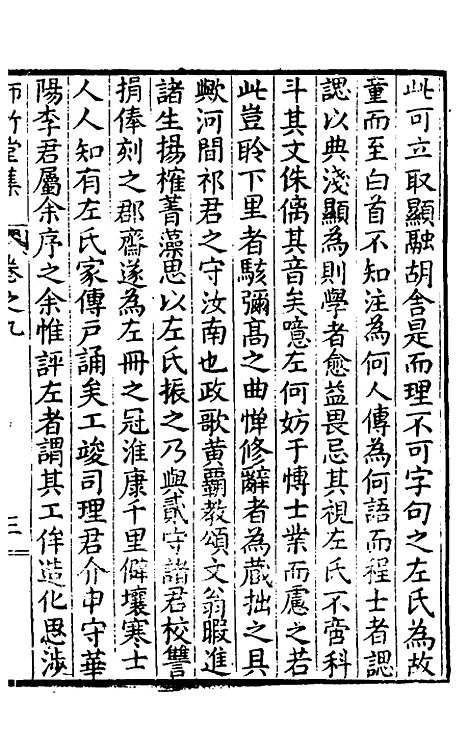 此可立取顯融胡舍是而理不可字句之左氏為故
童而至白首不知注為何人傳為何語而程士者諰
諰以典淺顯為則學者愈益畏忌其視左氏不啻科
斗其文侏㒧其音矣噫左何妨于博士業而慮之若
此豈聆下里者駭彌髙之曲憚修辭者為蔵拙之具
歟河間祁君之守汝南也政歌黄霸教頌文翁暇進
諸生揚㩁菁藻思以左氏振之乃與貳守諸君校讐
捐俸刻之郡齋遂為左冊之冠淮康千里僻壤寒士
人人知有左氏家傳戸誦矣工竣司理君介申守華
陽李君屬余序之余惟評左者謂其工侔造化思涉
師竹堂集
卷之九
三